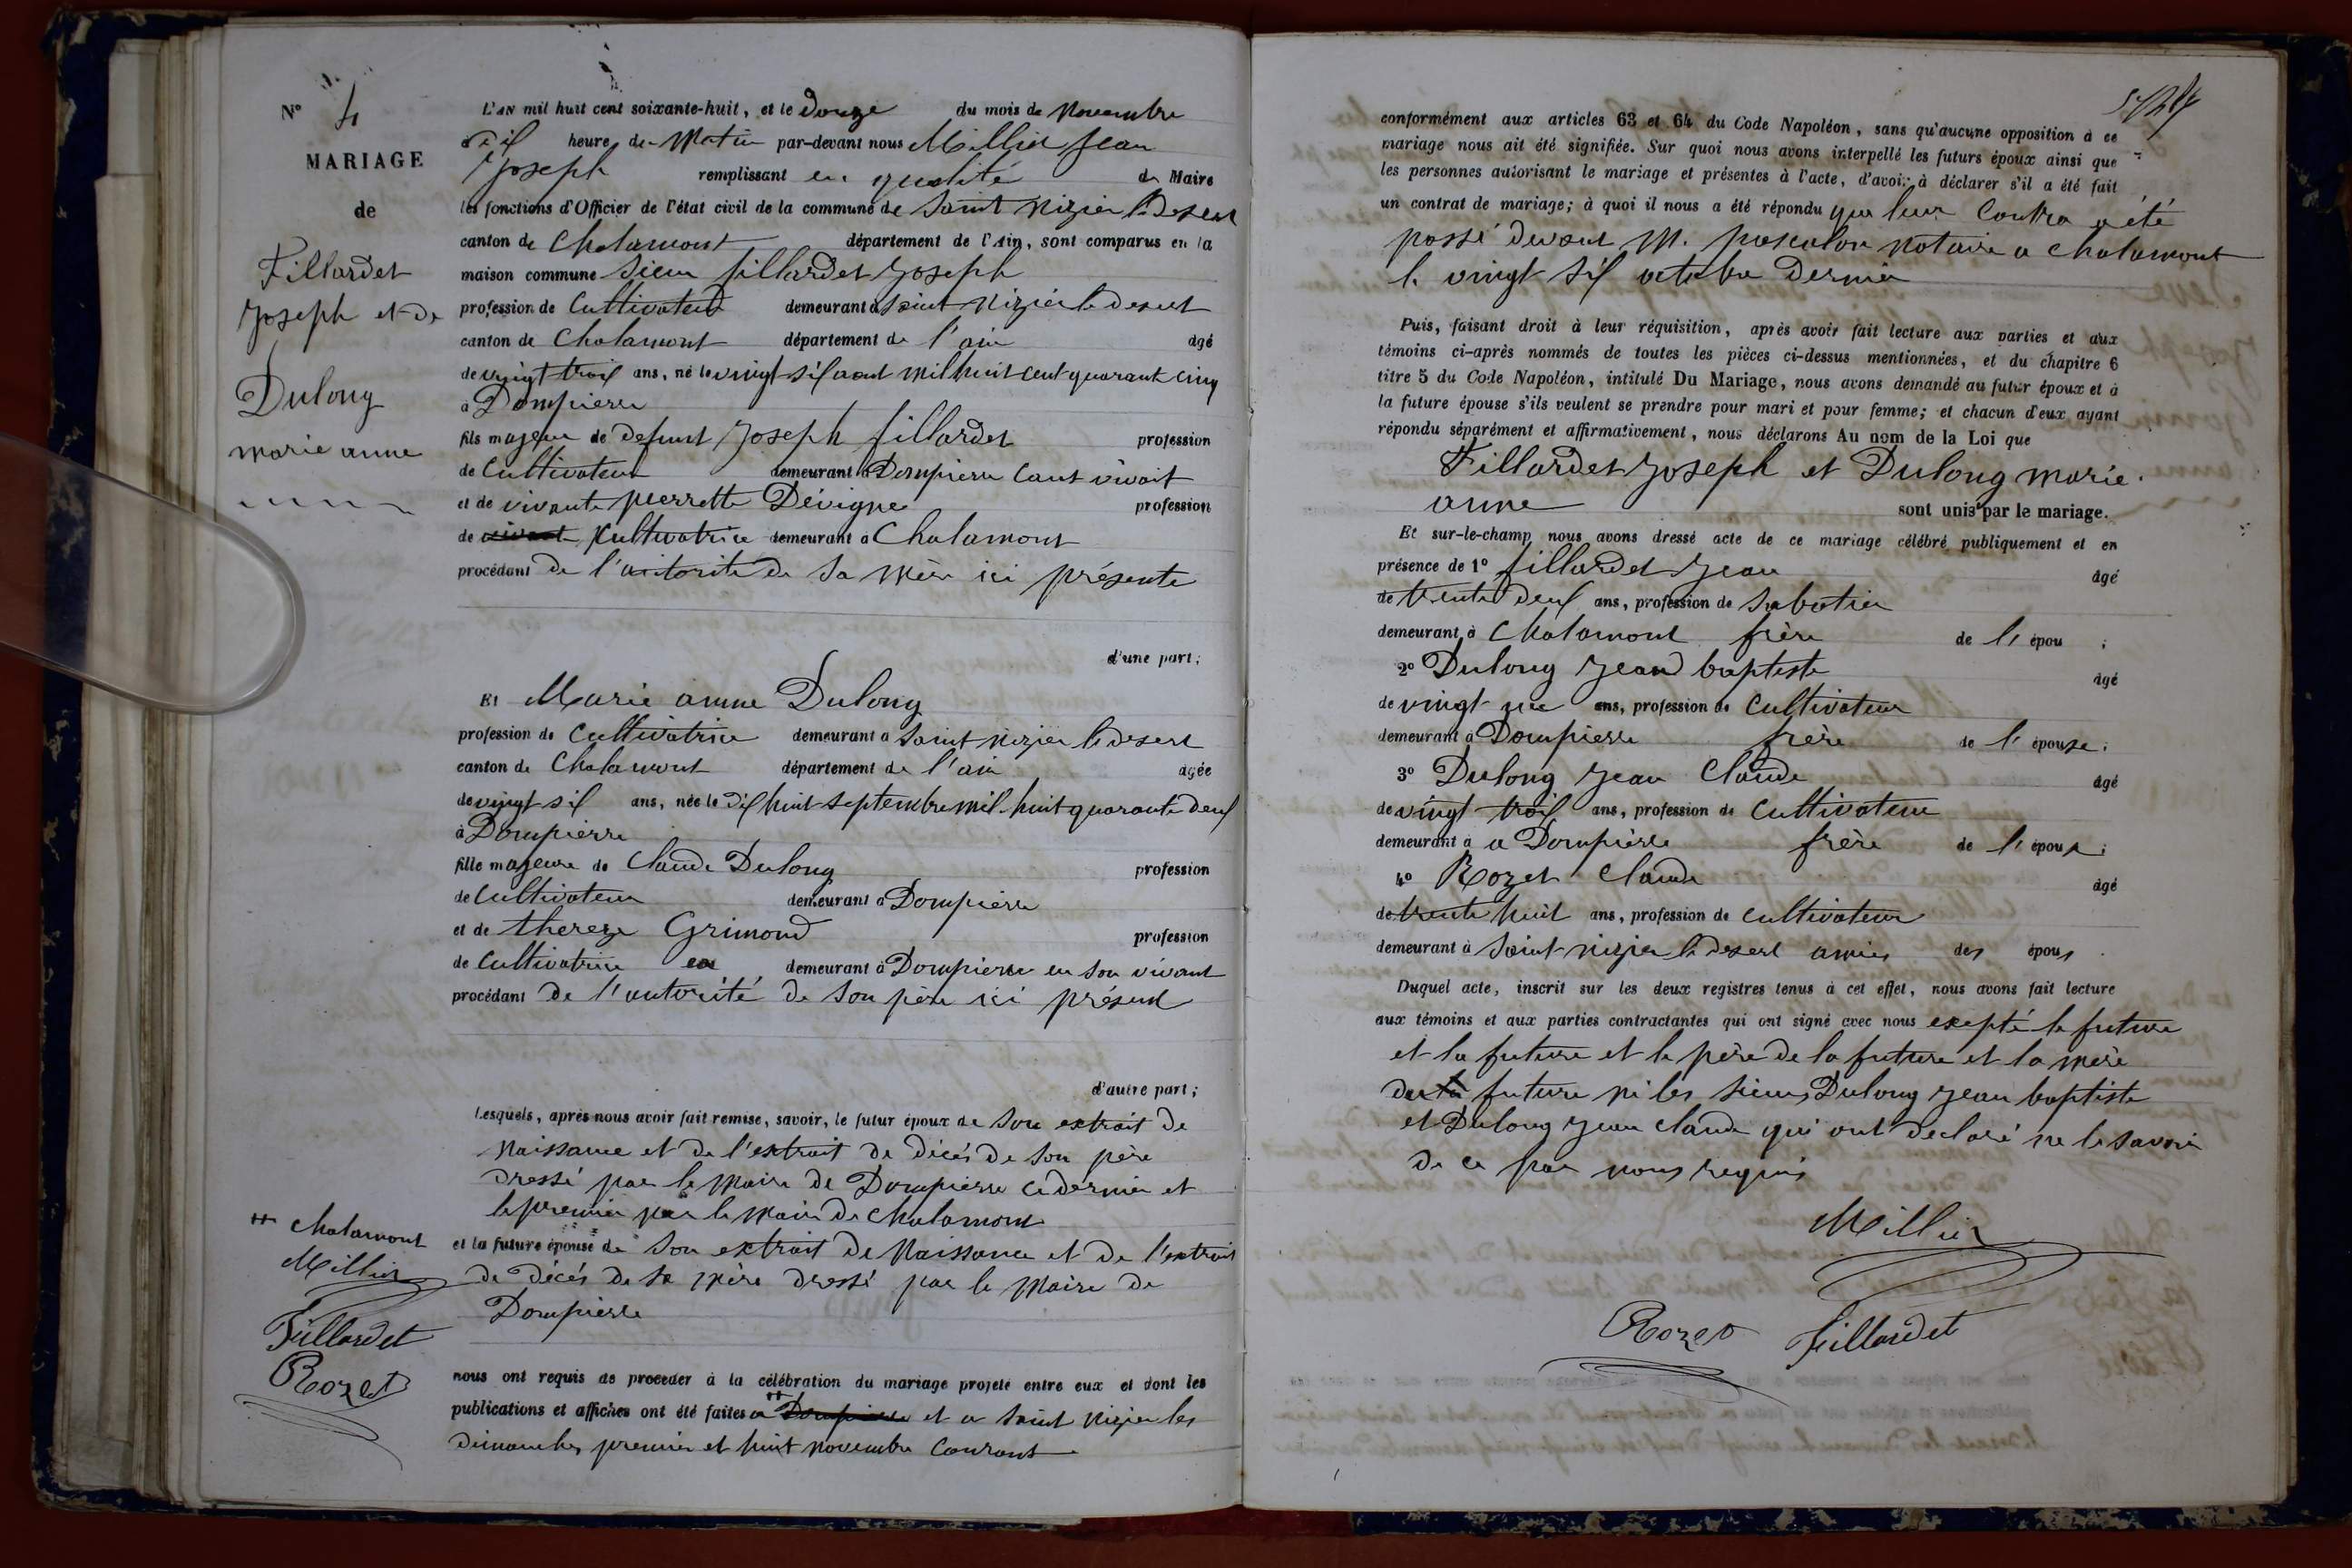 N° 4
MARIAGE
de
Fillardet
Joseph et de
Dulong
marie anne
L'AN mil huit cent soixante-huit, et le Douze du mois de Novembre
à dix heure du Matin par-devant nous Millier Jean
Joseph remplissant en qualité de Maire
les fonctions d'Officier de l'état civil de la commune de Saint Nizier le desert
canton de Chalamont département de l'Ain, sont comparus en la
maison commune Sieur fillardet Joseph
profession de Cultivateur demeurant à Saint Nizier le desert
canton de Chalamont département de l'ain âgé
de vingt trois ans, né le vingt six aout mil huit cent quarante cinq
à Dompierre
fils majeur de defunt Joseph fillardet profession
de Cultivateur demeurant à Dompierre vivait
et de vivante pierrette Dévigne profession
de cultivatrice demeurant à Chalamont
procédant de l'autorité de sa mère ici présente
d'une part;
Et Marie anne Dulong
profession de Cultivatrice demeurant à Saint nizier le desert
canton de Chalamont département de l'ain âgée
de vingt six ans, née le dix huit septembre mil huit quarante deux
à Dompierre
fille majeure de Claude Dulong profession
de Cultivateur demeurant à Dompierre
et de thereze Grimond profession
de Cultivatrice demeurant à Dompierre en son vivant
procédant de l'autorité de son père ici présent
d'autre part;
Lesquels, après nous avoir fait remise, savoir, le futur époux de son extrait de
Naissance et de l'extrait de décés de son père
dressé par le Maire de Dompierre ce dernier et
le premier par le Maire de Chalamont
et la future épouse de son extrait de Naissance et de l'extrait
de décés de sa mère dressé par le Maire de
Dompierre
nous ont requis de proceder à la célébration du mariage projeté entre eux et dont les
publications et affiches ont été faites a ++ Dompierre et a Saint Nizier les
dimanches premier et huit novembre Courant
++ Chalamont
Millier
Fillardet
Rozet
conformément aux articles 63 et 64 du Code Napoléon, sans qu'aucune opposition à ce
mariage nous ait été signifiée. Sur quoi nous avons interpellé les futurs époux ainsi que
les personnes autorisant le mariage et présentes à l'acte, d'avoir à déclarer s'il a été fait
un contrat de mariage; à quoi il nous a été répondu que leur Contra a été
passé devant M. pascalon notaire a Chalamont
le vingt six octobre dernier
Puis, faisant droit à leur réquisition, après avoir fait lecture aux parties et aux
témoins ci-après nommés de toutes les pièces ci-dessus mentionnées, et du chapitre 6
titre 5 du Code Napoléon, intitulé Du Mariage, nous avons demandé au futur époux et à
la future épouse s'ils veulent se prendre pour mari et pour femme; et chacun d'eux ayant
répondu séparément et affirmativement, nous déclarons Au nom de la Loi que
Fillardet Joseph et Dulong marie
anne sont unis par le mariage.
Et sur-le-champ nous avons dressé acte de ce mariage célébré publiquement et en
présence de 1° fillardet Jean âgé
de trente deux ans, profession de Sabotier
demeurant à Chalamont frère de l' épou ;
2° Dulong Jean baptiste âgé
de vingt ans, profession de Cultivateur
demeurant à Dompierre frère de l' épouse;
3° Dulong Jean Claude âgé
de vingt trois ans, profession de Cultivateur
demeurant à a Dompierre frère de l' épouse;
4° Rozet Claude âgé
de trente huit ans, profession de cultivateur
demeurant à Saint nizier le desert amis des époux
Duquel acte, inscrit sur les deux registres tenus à cet effet, nous avons fait lecture
aux témoins et aux parties contractantes qui ont signé avec nous exepté le future
et la future et le père de la future et la mère
du future ni les sieurs Dulong Jean baptiste
et Dulong Jean Claude qui ont declaré ne le savoir
de ce par nous requis
Millier
Rozet Fillardet